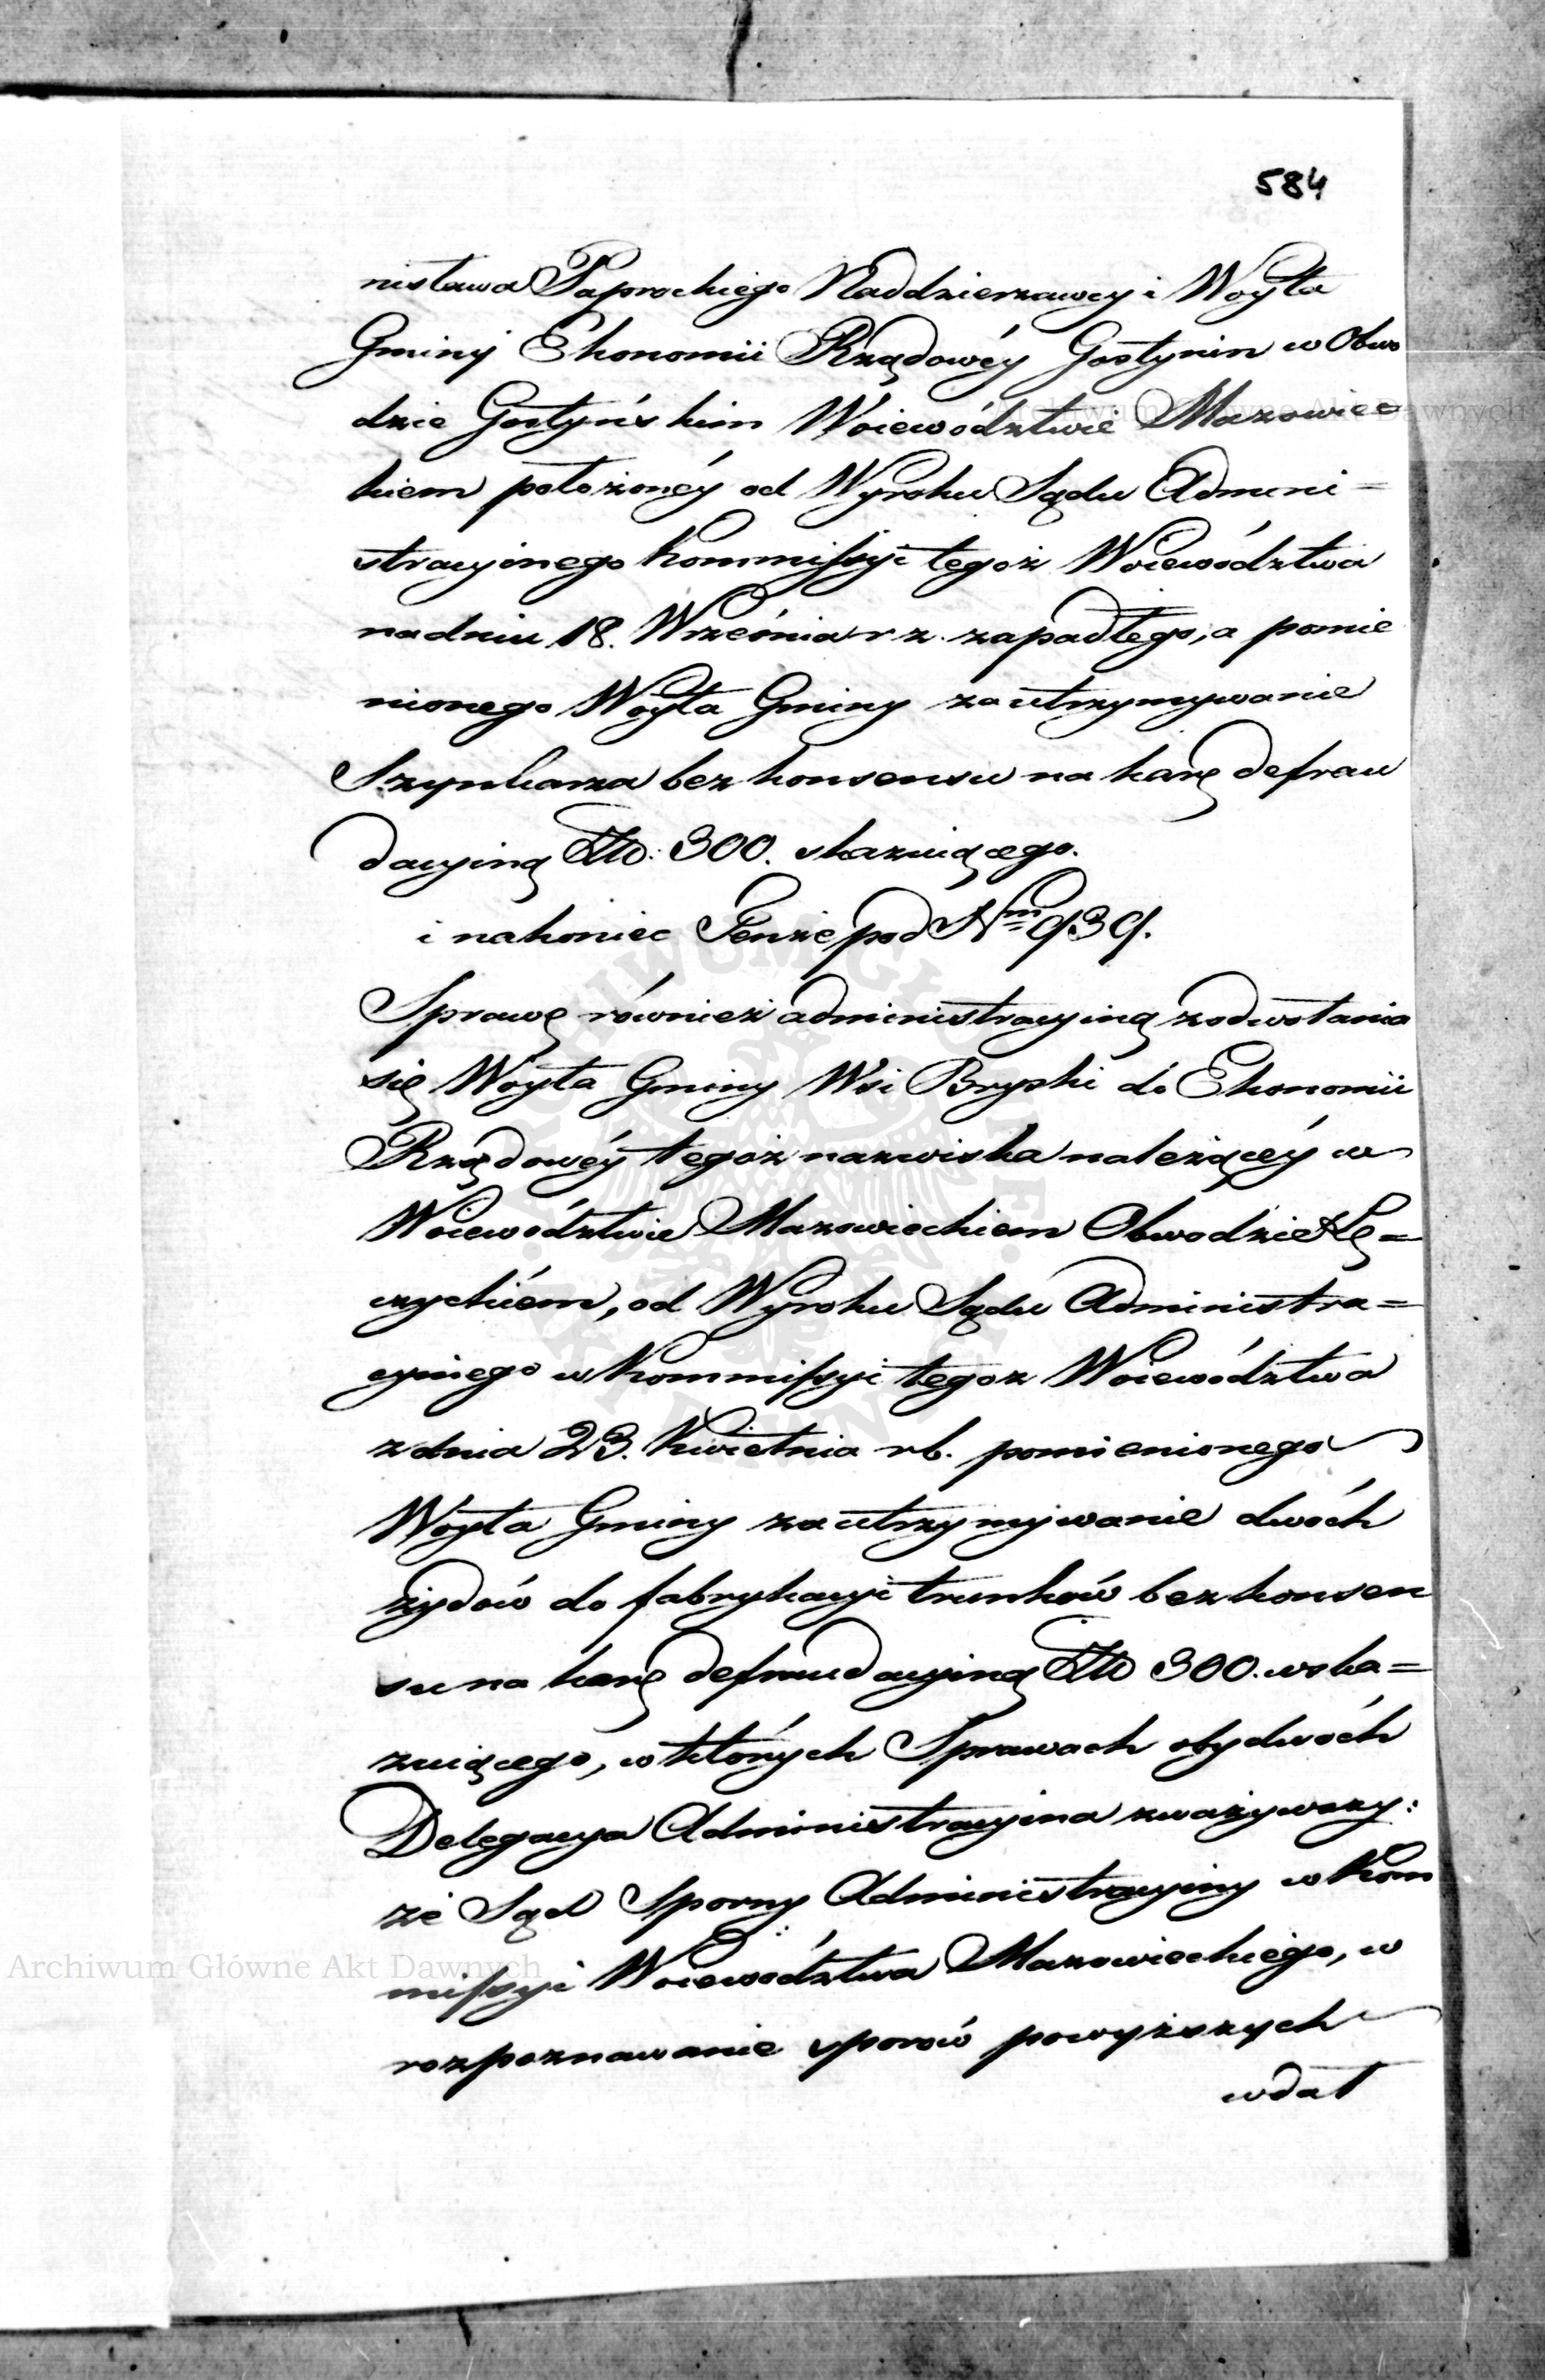 584
nisława Paprockiego Naddzierzawcy i Woyta
Gminy Ekonomii Rządowéy Gostynin w Obwo
dzie Gostyńskim Woiewództwie Mazowiec
kiem położonéy od Wyroku Sądu Admini=
stracyinego Kommissyi tegoż Woiewództwa
na dniu 18. Września r z. zapadłego, a pomie
nionego Woyta Gminy za utrzymywanie
Szynkarza bez konsensu na karę defrau
dacyiną Złł: 300. skazuiącego.
i nakoniec Tenże pod Nrm 939.
Sprawę również administracyiną z odwołania
się Woyta Gminy Wsi Bryski do Ekonomii
Rządowéy tegoż nazwiska należącéy w
Woiewództwie Mazowieckiem Obwodzie Łę=
czyckiém, od Wyroku Sądu Administra=
cyinego w Kommissyi tegoz Woiewództwa
z dnia 23. Kwietnia rb. pomienionego
Wóyta Gminy za utrzymywanie dwóch
żydów do fabrykacyi trunków bez konsen
su na karę defraudacyiną Złł 300. wska=
zuiącego, w których Sprawach obydwóch
Delegacya Administracyina zważywszy:
że Sąd Sporny Administracyiny w Kom
missyi Woiewództwa Mazowieckiego, w
rozpoznawanie sporów powyższych
wdał
Archiwum Główne Akt Dawnych
Archiwum Główne Akt Dawnych
ARCHIWUM GŁÓWNE AKT DAWNYCH